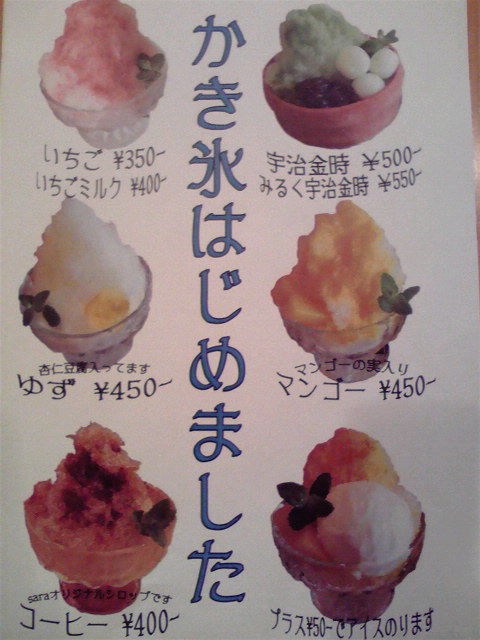 かき氷はじめました
いちご ¥350-
いちごミルク ¥400-
宇治金時 ¥500-
みるく宇治金時 ¥550-
杏仁豆腐入ってます
ゆず ¥450-
マンゴーの実入り
マンゴー ¥450-
saraオリジナルシロップです
コーヒー ¥400-
プラス¥50-でアイスのります